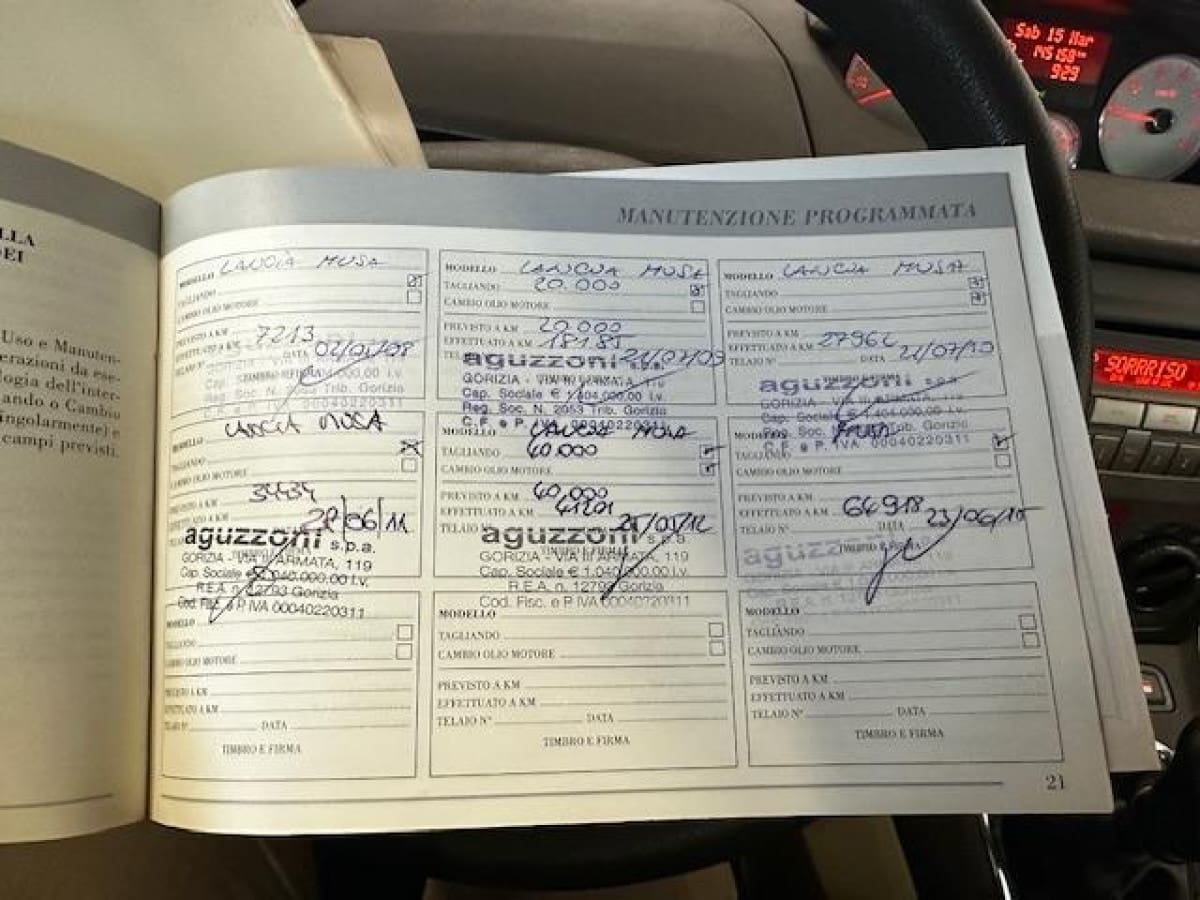 Sab 15 Mar
145158 km
9:29
SORRRISO
LLA
DEI
Uso e Manuten-
erazioni da ese-
logia dell'inter-
ando o Cambio
ingolarmente) e
campi previsti.
MANUTENZIONE PROGRAMMATA
MODELLO LANCIA MUSA
TAGLIANDO
CAMBIO OLIO MOTORE
PREVISTO A KM
EFFETTUATO A KM 7213
TELAIO N° DATA
TIMBRO E FIRMA
Trib. Gorizia
MODELLO LANCIA MUSA
TAGLIANDO 20.000
CAMBIO OLIO MOTORE
PREVISTO A KM 20.000
EFFETTUATO A KM 18185
21/07/09
aguzzoni s.p.a.
GORIZIA - VIA III ARMATA, 119
Cap. Sociale € 1.404.000,00 i.v.
Reg. Soc. N. 2053 Trib. Gorizia
C.F. e P. IVA 00040220311
MODELLO LANCIA MUSA
TAGLIANDO
CAMBIO OLIO MOTORE
PREVISTO A KM
EFFETTUATO A KM
TELAIO N° DATA 21/07/10
aguzzoni s.p.a.
C.F. e P. IVA 00040220311
LANCIA MUSA
MODELLO
TAGLIANDO
CAMBIO OLIO MOTORE
PREVISTO A KM
EFFETTUATO A KM
aguzzoni s.p.a.
GORIZIA - VIA III ARMATA, 119
Cap. Sociale € 1.040.000,00 i.v.
R.E.A. n. 12793 Gorizia
Cod. Fisc. e P. IVA 00040220311
MODELLO LANCIA MUSA
TAGLIANDO 40.000
CAMBIO OLIO MOTORE
PREVISTO A KM 40.000
EFFETTUATO A KM 41201
TELAIO N° 25/05/12
aguzzoni s.p.a.
GORIZIA - VIA III ARMATA, 119
Cap. Sociale € 1.040.000,00 i.v.
R.E.A. n. 12793 Gorizia
Cod. Fisc. e P. IVA 00040220311
MODELLO
TAGLIANDO
CAMBIO OLIO MOTORE
PREVISTO A KM
EFFETTUATO A KM 64918
TELAIO N° DATA
TIMBRO E FIRMA
aguzzoni
MODELLO
TAGLIANDO
CAMBIO OLIO MOTORE
PREVISTO A KM
EFFETTUATO A KM
TELAIO N° DATA
TIMBRO E FIRMA
MODELLO
TAGLIANDO
CAMBIO OLIO MOTORE
PREVISTO A KM
EFFETTUATO A KM
TELAIO N° DATA
TIMBRO E FIRMA
MODELLO
TAGLIANDO
CAMBIO OLIO MOTORE
PREVISTO A KM
EFFETTUATO A KM
TELAIO N° DATA
TIMBRO E FIRMA
21